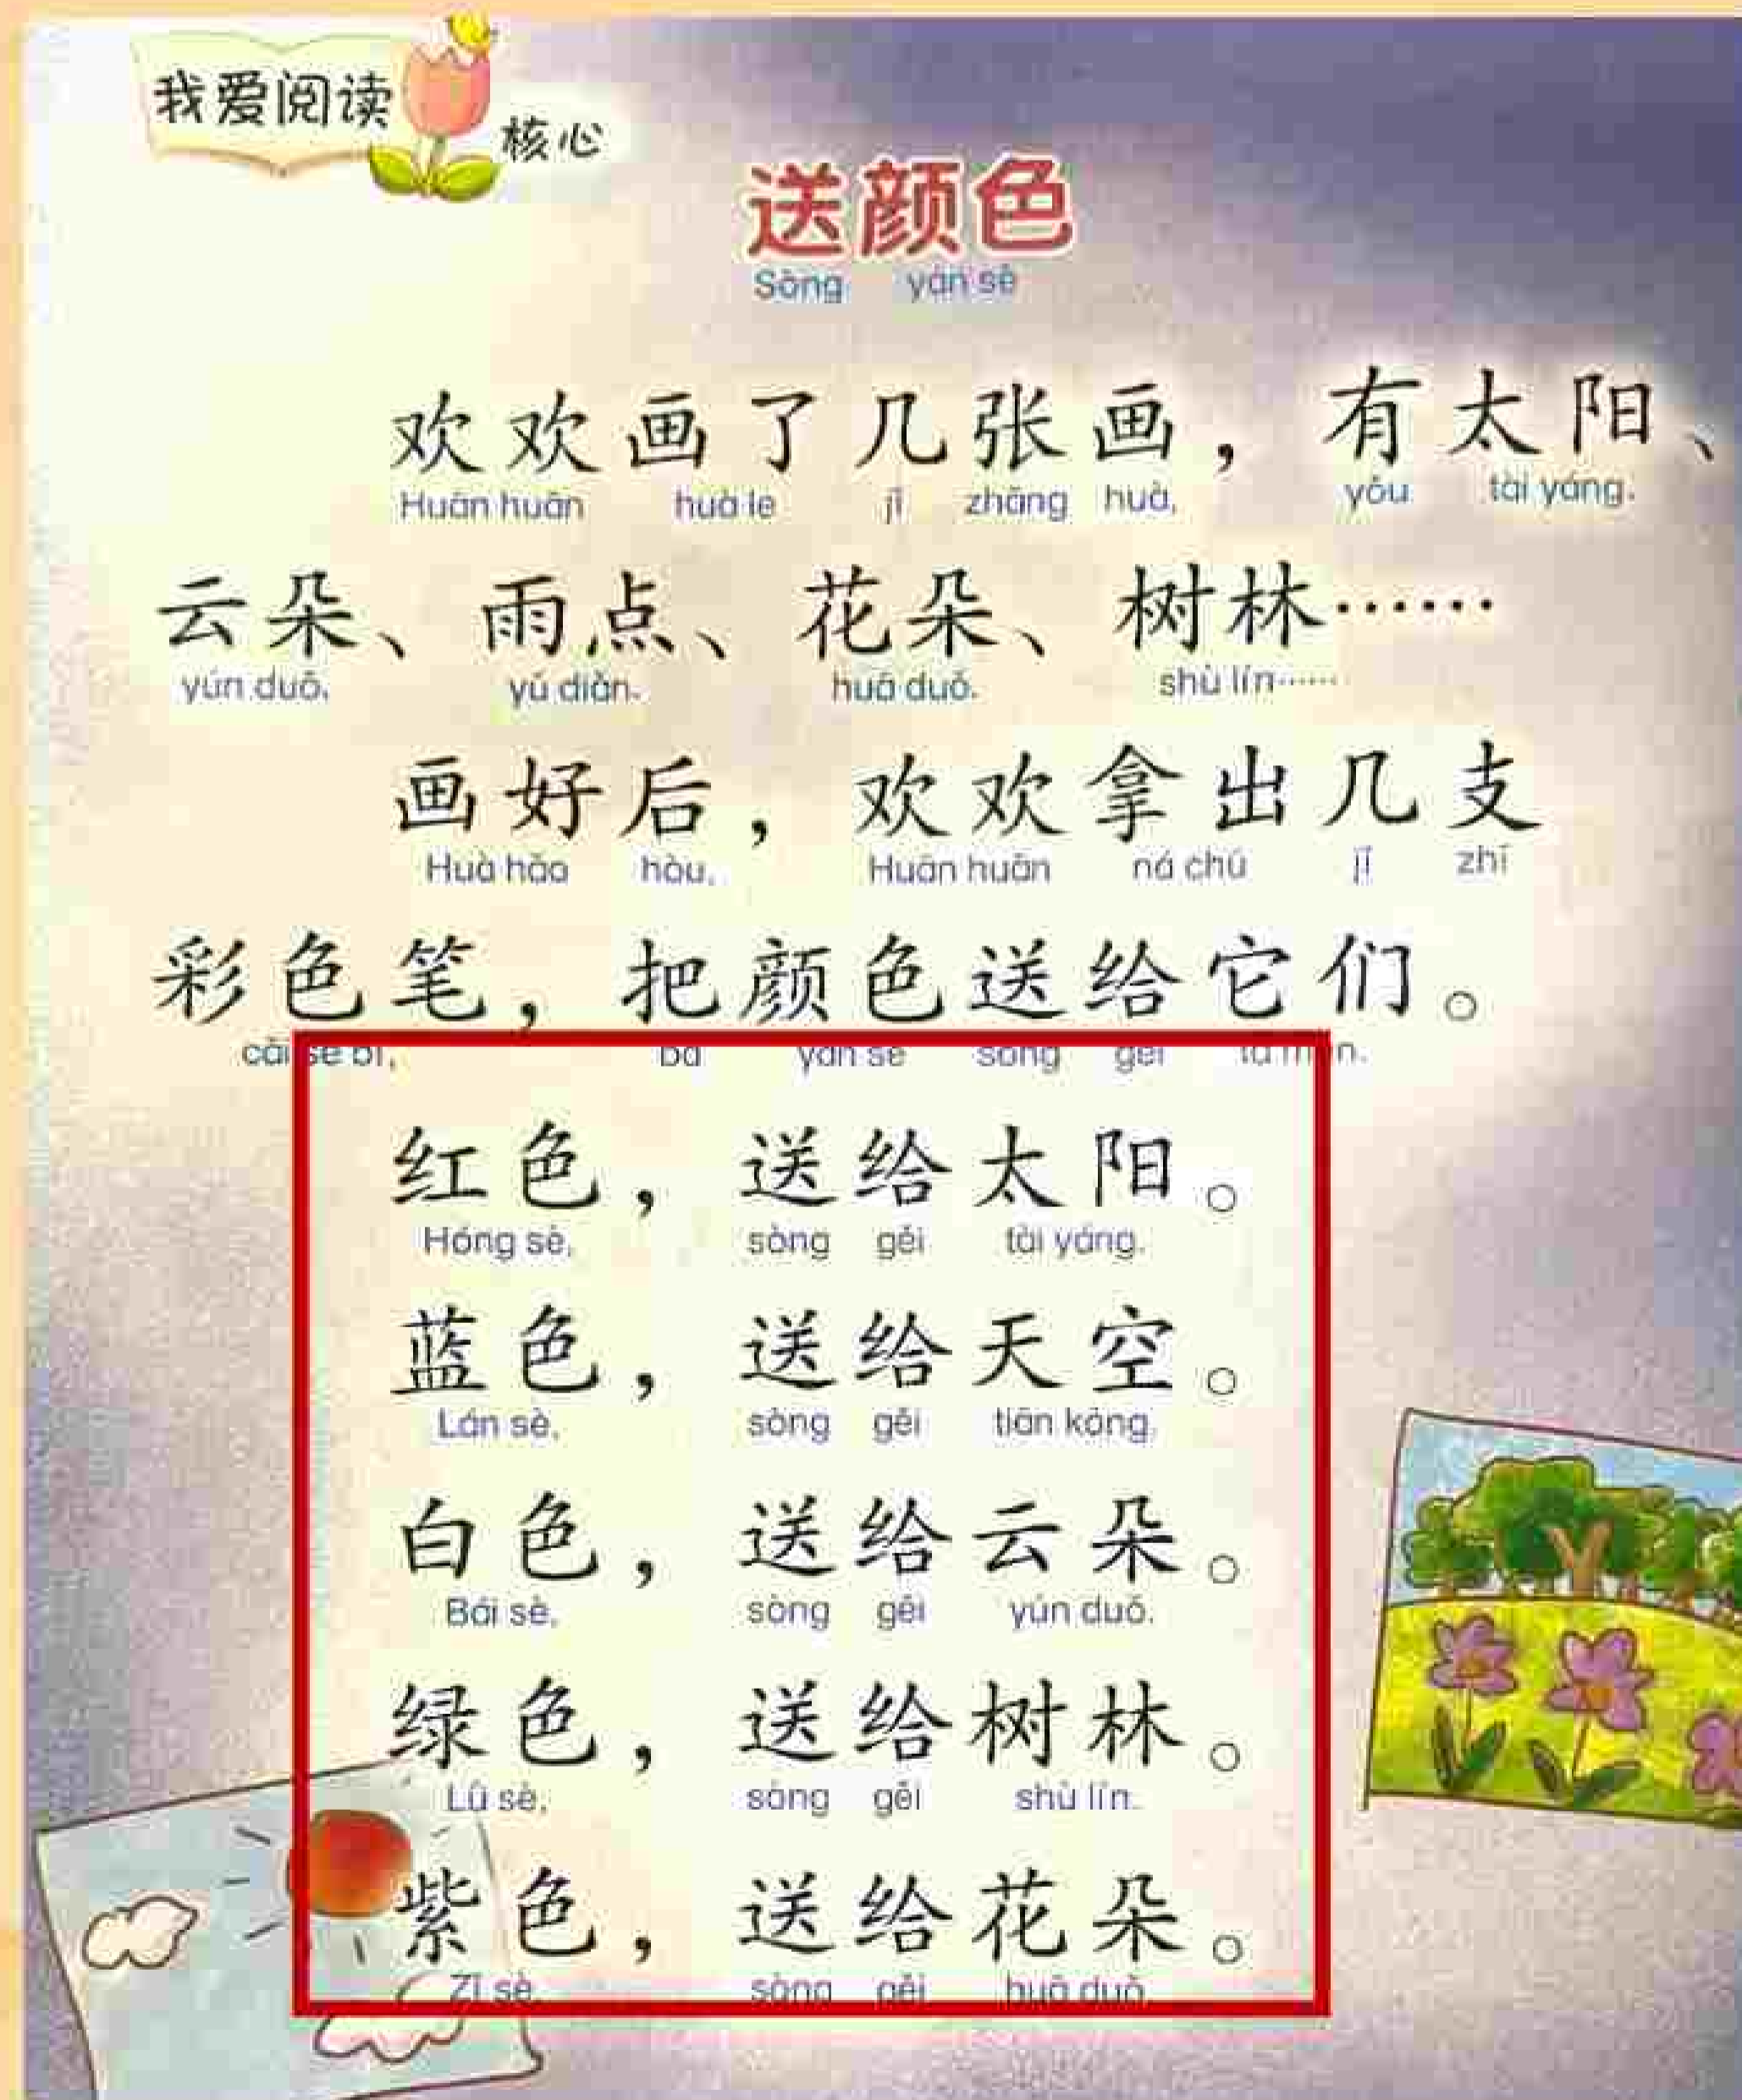 我爱阅读
核心
送颜色
Sòng yán sè
欢欢画了几张画，有太阳、
Huān huān huà le jǐ zhāng huà, yǒu tài yáng、
云朵、雨点、花朵、树林……
yún duǒ、 yǔ diǎn、 huā duǒ、 shù lín……
画好后，欢欢拿出几支
Huà hǎo hòu, Huān huān ná chū jǐ zhī
彩色笔，把颜色送给它们。
cǎi sè bǐ, bǎ yán sè sòng gěi tā men.
红色，送给太阳。
Hóng sè, sòng gěi tài yáng.
蓝色，送给天空。
Lán sè, sòng gěi tiān kōng.
白色，送给云朵。
Bái sè, sòng gěi yún duǒ.
绿色，送给树林。
Lǜ sè, sòng gěi shù lín.
紫色，送给花朵。
Zǐ sè, sòng gěi huā duǒ.